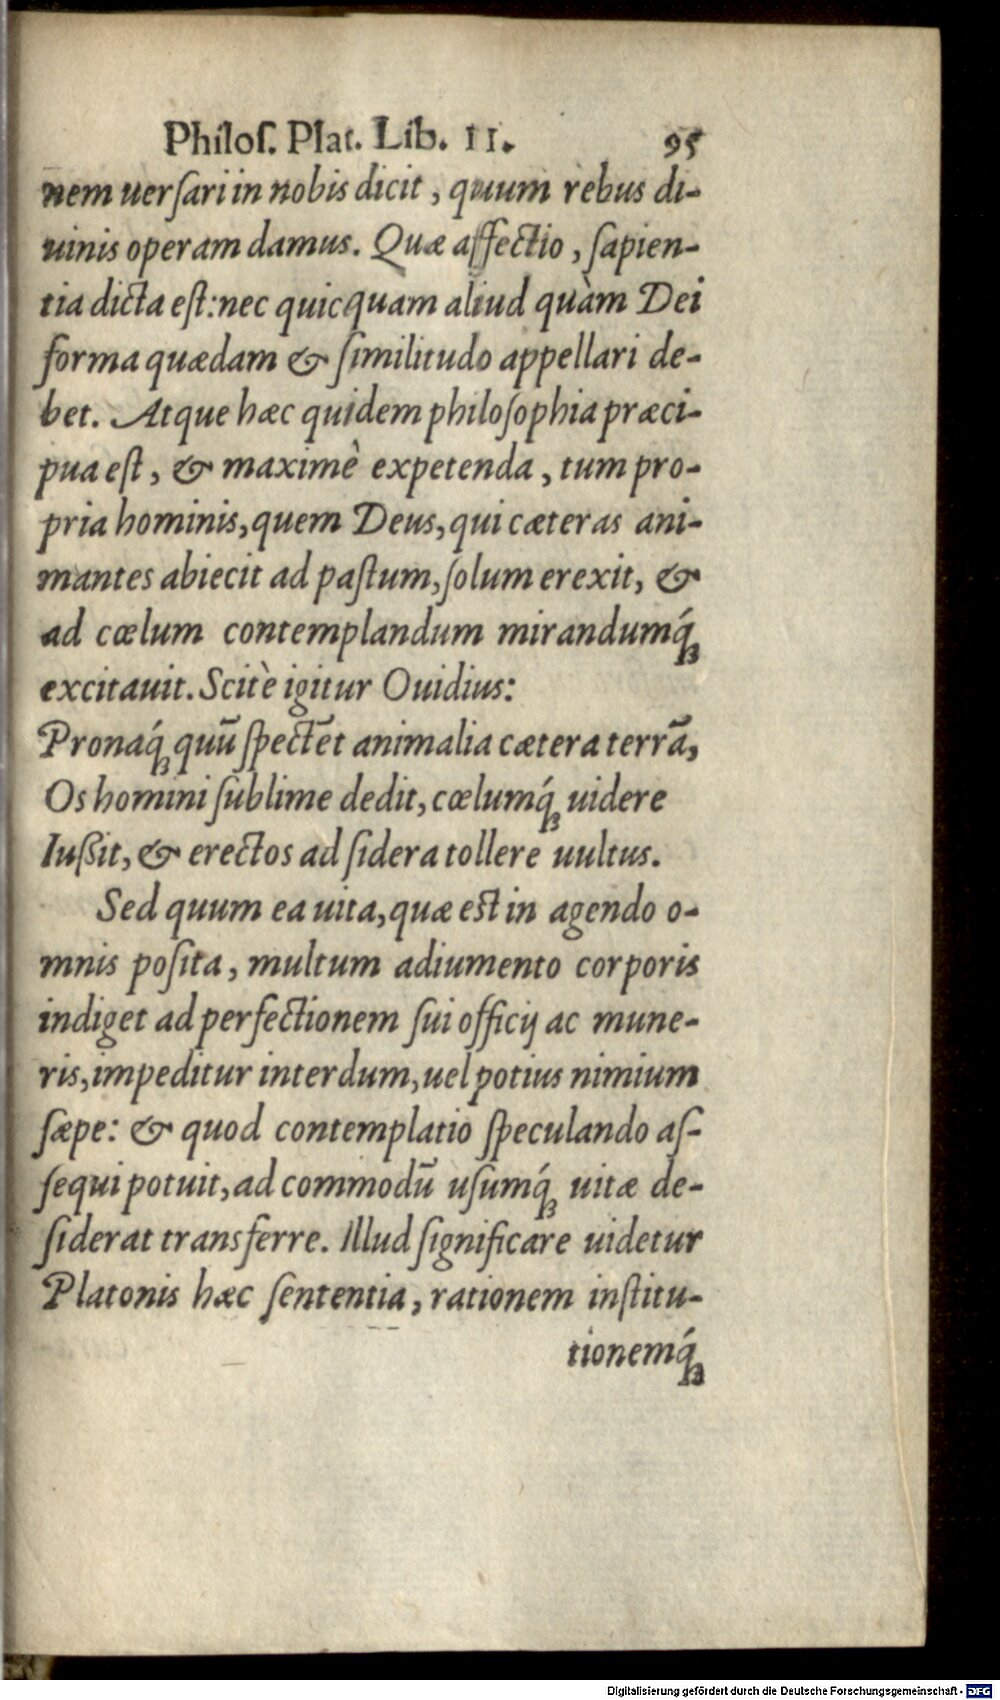 Philoſ. Plat. Lib. II. 95
nem uerſari in nobis dicit, quum rebus di-
uinis operam damus. Quæ affectio, ſapien-
tia dicta eſt: nec quicquam aliud quàm Dei
forma quædam & ſimilitudo appellari de-
bet. Atque hæc quidem philoſophia præci-
pua eſt, & maximè expetenda, tum pro-
pria hominis, quem Deus, qui cæteras ani-
mantes abiecit ad paſtum, ſolum erexit, &
ad cœlum contemplandum mirandumq́;
excitauit. Scitè igitur Ouidius:
Pronaq́; quū ſpectēt animalia cætera terrā,
Os homini ſublime dedit, cœlumq́; uidere
Iußit, & erectos ad ſidera tollere uultus.
Sed quum ea uita, quæ est in agendo o-
mnis poſita, multum adiumento corporis
indiget ad perfectionem ſui officij ac mune-
ris, impeditur interdum, uel potius nimium
ſæpe: & quod contemplatio ſpeculando aſ-
ſequi potuit, ad commodū uſumq́; uitæ de-
ſiderat transferre. Illud ſignificare uidetur
Platonis hæc ſententia, rationem inſtitu-
tionemq́;
Digitalisierung gefördert durch die Deutsche Forschungsgemeinschaft - DFG